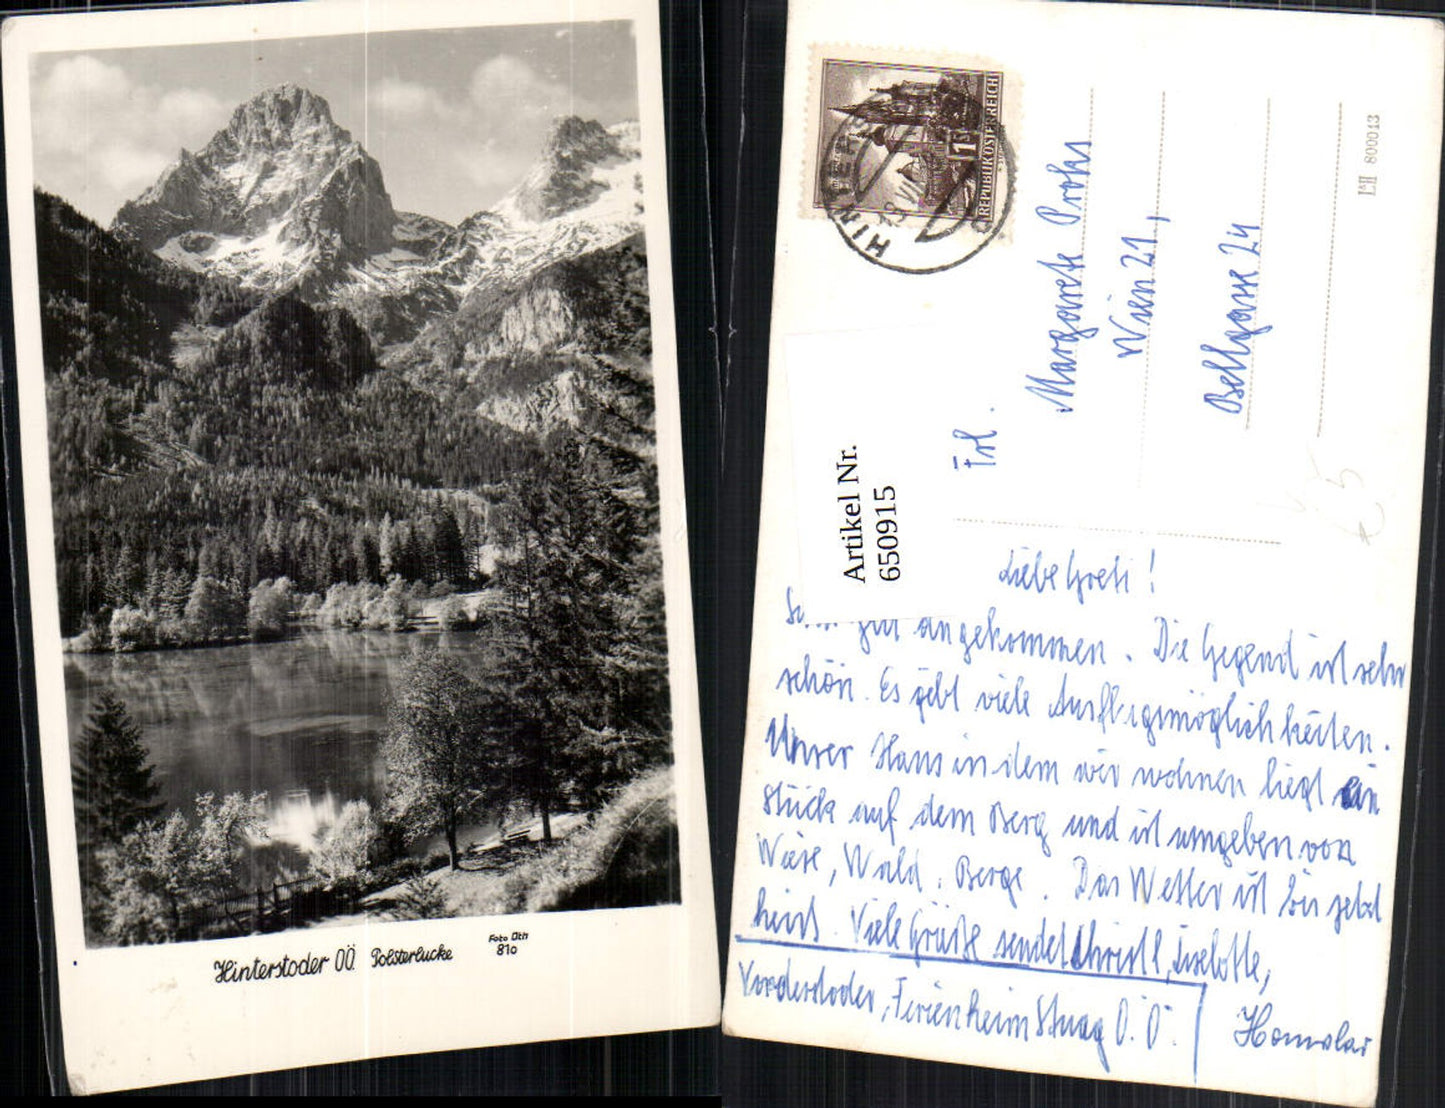 Hinterstoder OÖ. Polsterlucke
Foto Oth
810
REPUBLIK ÖSTERREICH
1S
HINTERS
LH 800013
Artikel Nr.
650915
Frl.
Margarete Prohs
Wien 21,
Bellgasse 24
€5
Liebe Greti!
gut angekommen. Die Gegend ist sehr
schön. Es gibt viele Ausflugsmöglichkeiten.
Unser Haus in dem wir wohnen liegt ein
Stück auf dem Berg und ist umgeben von
Wiese, Wald, Berge. Das Wetter ist bis jetzt
heiß. Viele Grüße sendet Christl, Liselotte,
Vorderstoder, Ferienheim Stuag O.Ö.